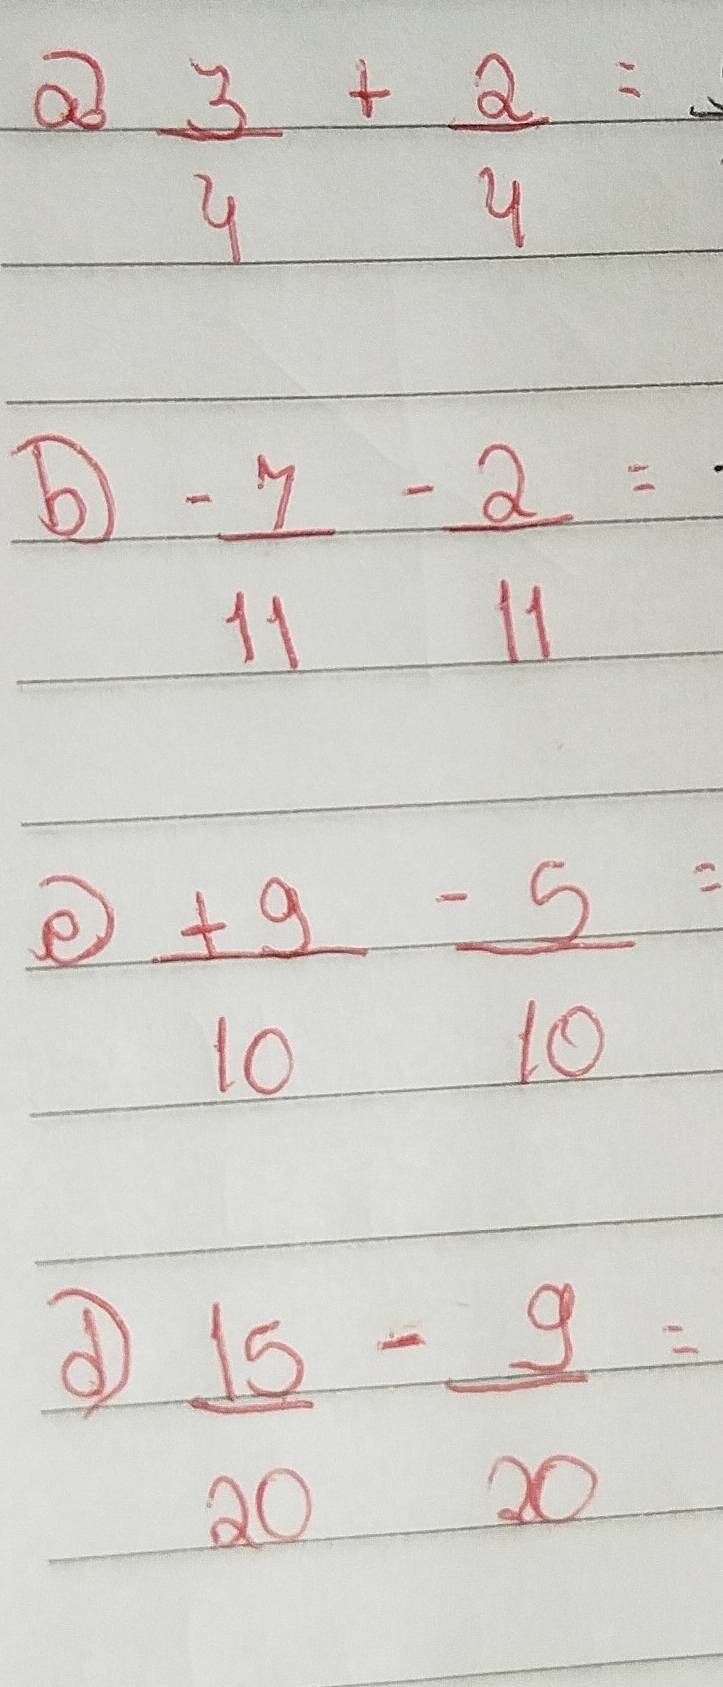 a) 3/4 + 2/4 =
b) - 7/11 - 2/11 =
c) + 9/10 - 5/10 =
d) 15/20 - 9/20 =